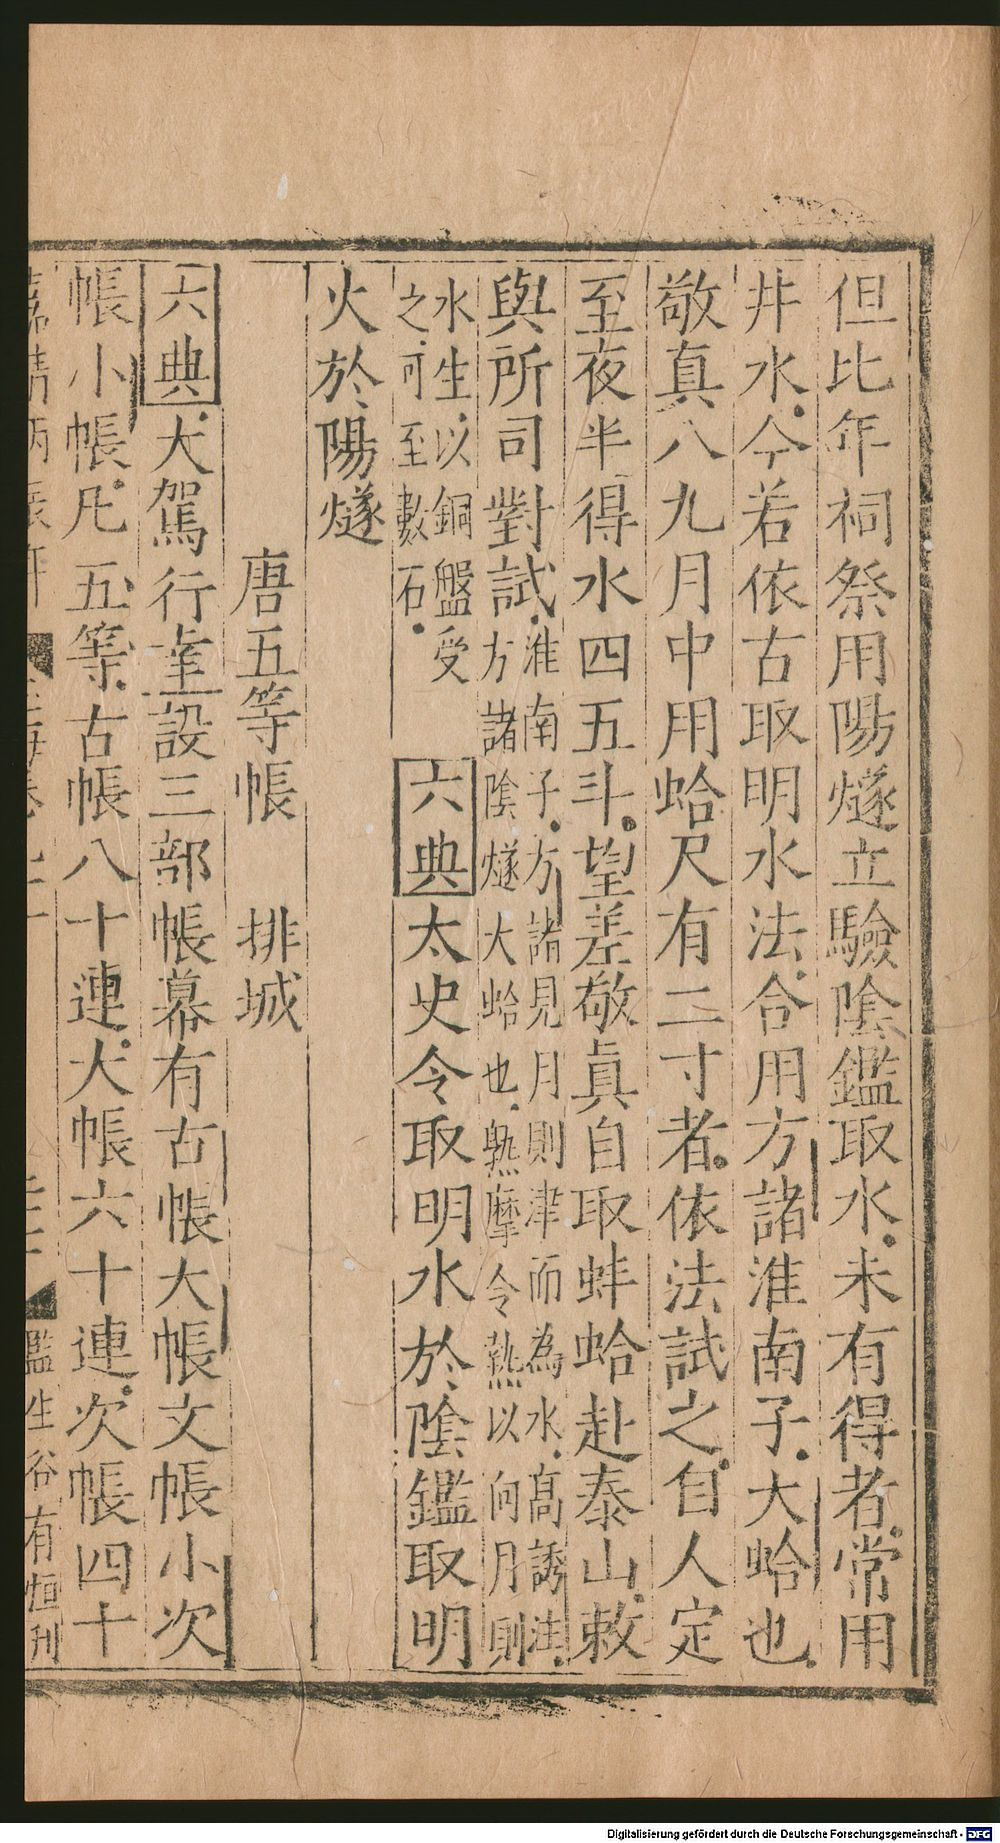 但比年祠祭用陽燧立驗陰鑑取水未有得者常用
井水今若依古取明水法合用方諸淮南子大蛤也
敬真八九月中用蛤尺有二寸者依法試之自人定
至夜半得水四五斗望差敬真自取蚌蛤赴泰山敕
與所司對試淮南子方諸見月則津而為水高誘注
方諸陰燧大蛤也熟摩令熱以向月則
水生以銅盤受
之可至數石
六典太史令取明水於陰鑑取明
火於陽燧
唐五等帳 排城
六典大駕行幸設三部帳幕有古帳大帳文帳小次
帳小帳凡五等古帳八十連大帳六十連次帳四十
監生谷有恒刊
Digitalisierung gefördert durch die Deutsche Forschungsgemeinschaft - DFG